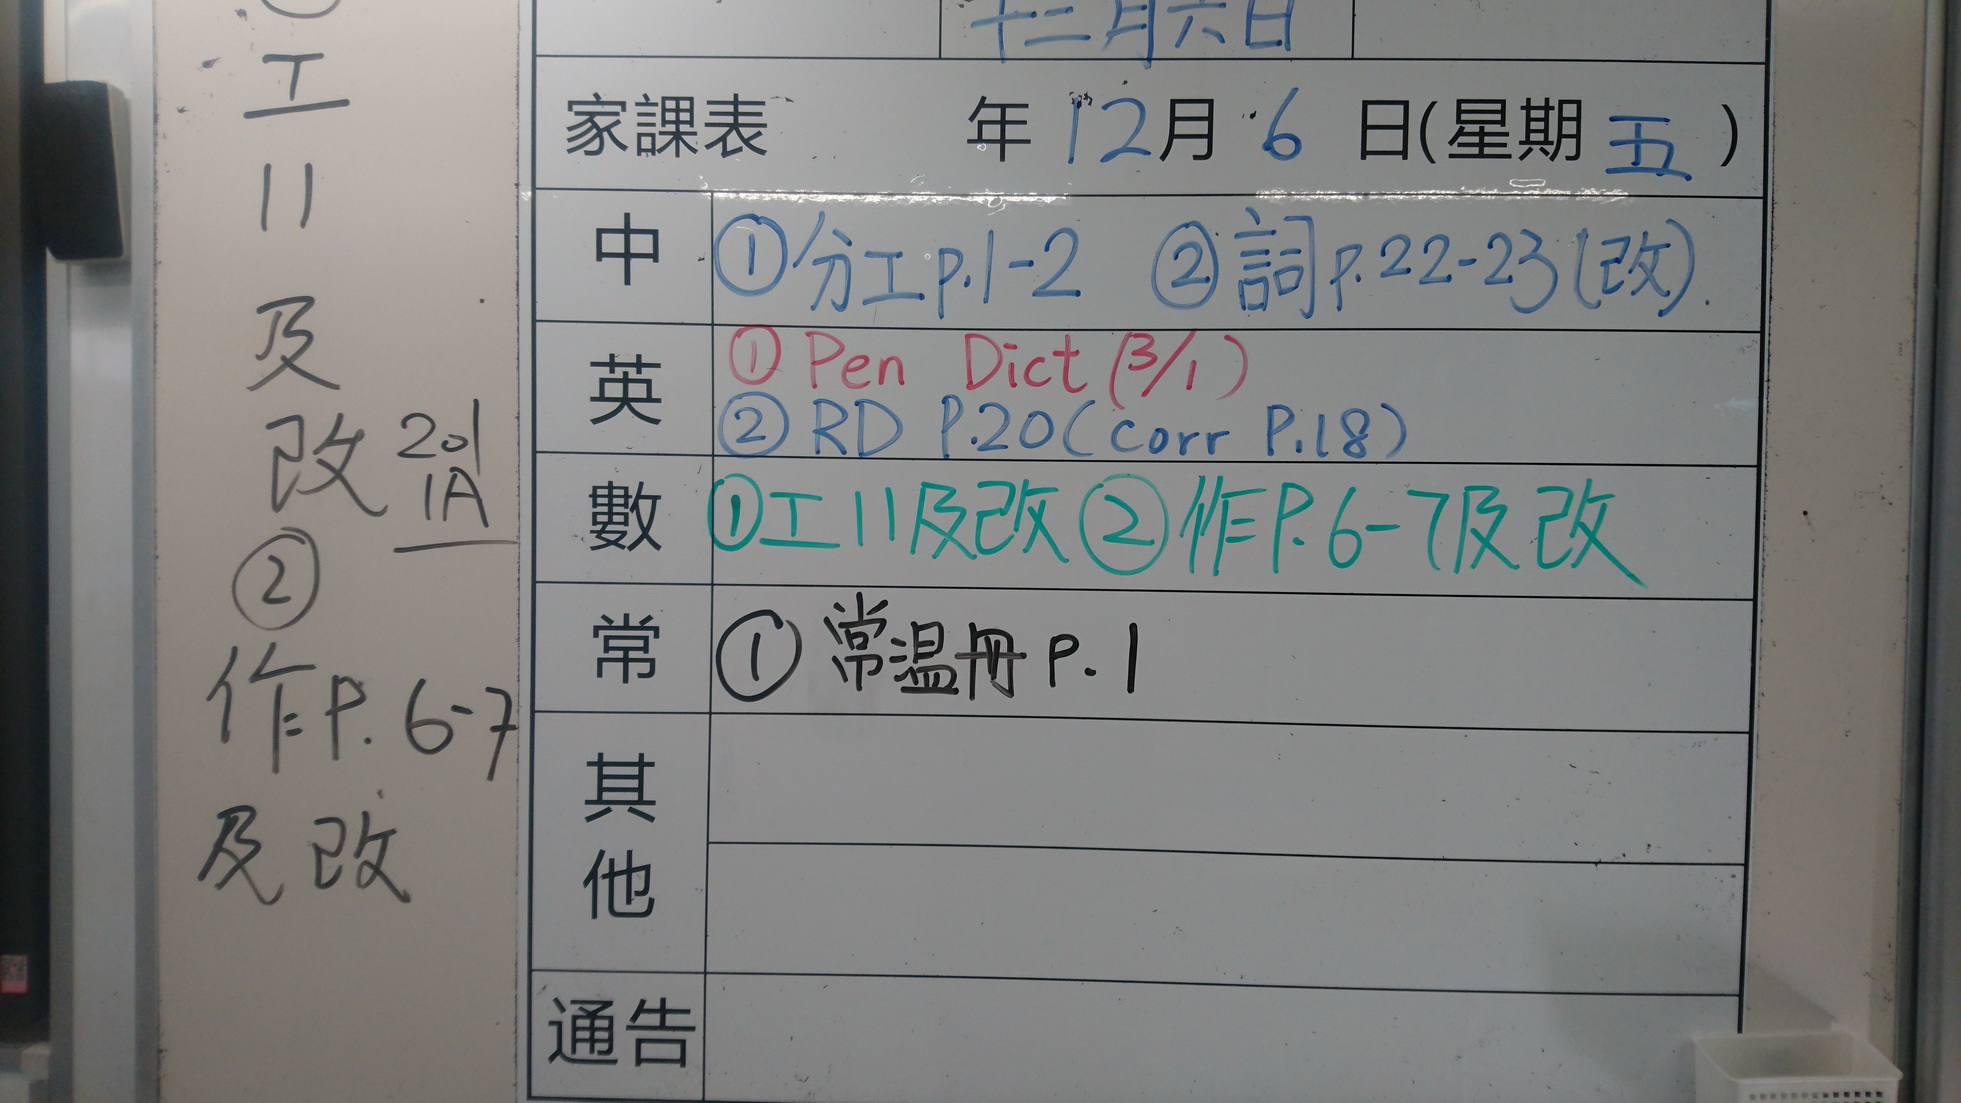 十二月六日
家課表 年 12月 6 日(星期 五 )
中 ①分工p.1-2 ②詞p.22-23(改).
英 ① Pen Dict (3/1)
② RD P.20(corr P.18)
數 ①工11及改②作P.6-7及改
常 ① 常温冊 P.1
其他
通告
工
11
及
改 201
1A
②
作P. 6-7
及改